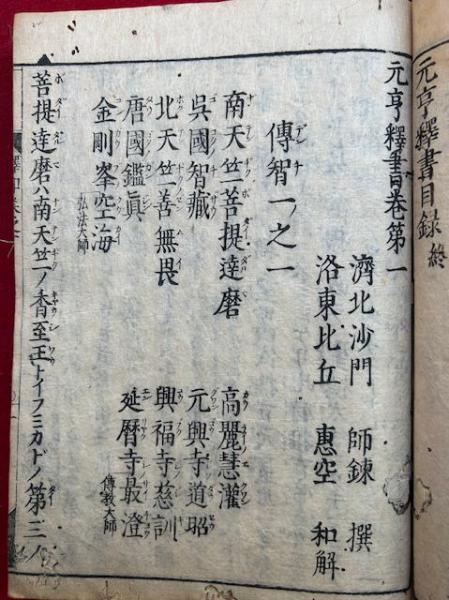 元亨釋書目録 終
元亨釋書卷第一
濟北沙門 師錬 撰
洛東比丘 惠空 和解
傳智一之一
南天竺菩提達磨 高麗慧灌
吳國智藏 元興寺道昭
北天竺善無畏 興福寺慈訓
唐國鑑眞 延曆寺最澄 傳教大師
金剛峯空海 弘法大師
菩提達磨ハ南天竺ノ香至王トイフミカドノ第三ノ